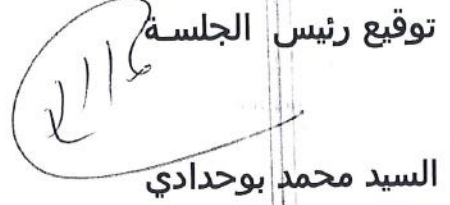 توقيع رئيس الجلسة
السيد محمد بوحدادي